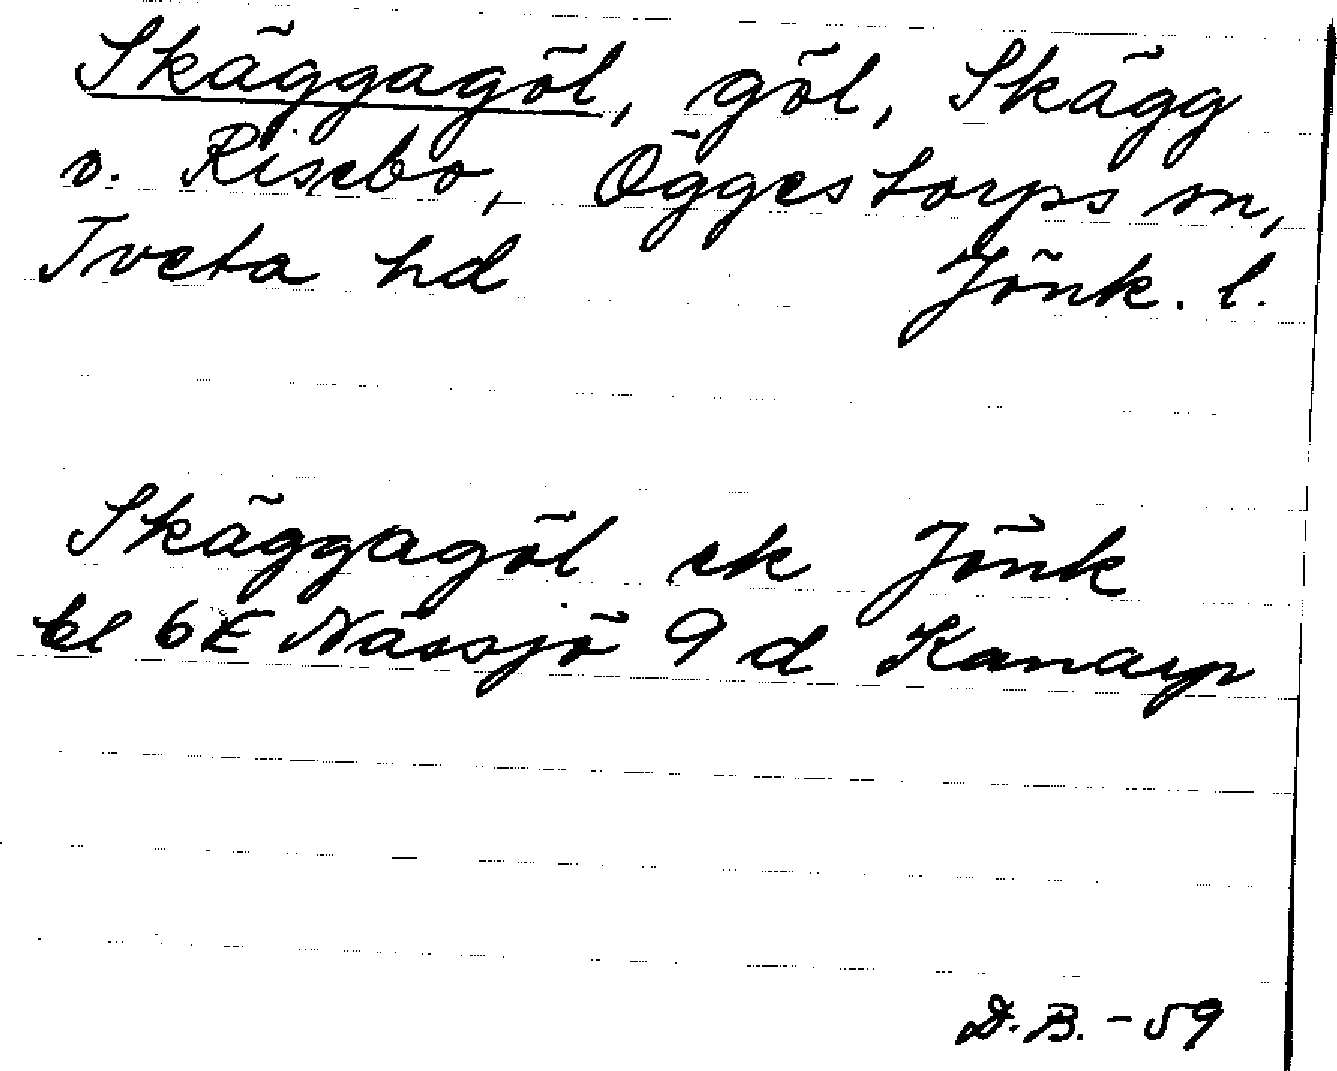 Skäggagöl, göl, Skägg
v. Risebo, Öggestorps sn,
Tveta hd Jönk. l.
Skäggagöl ek Jönk
bl 6E Nässjö 9 d Kanarp
D.B. - 59